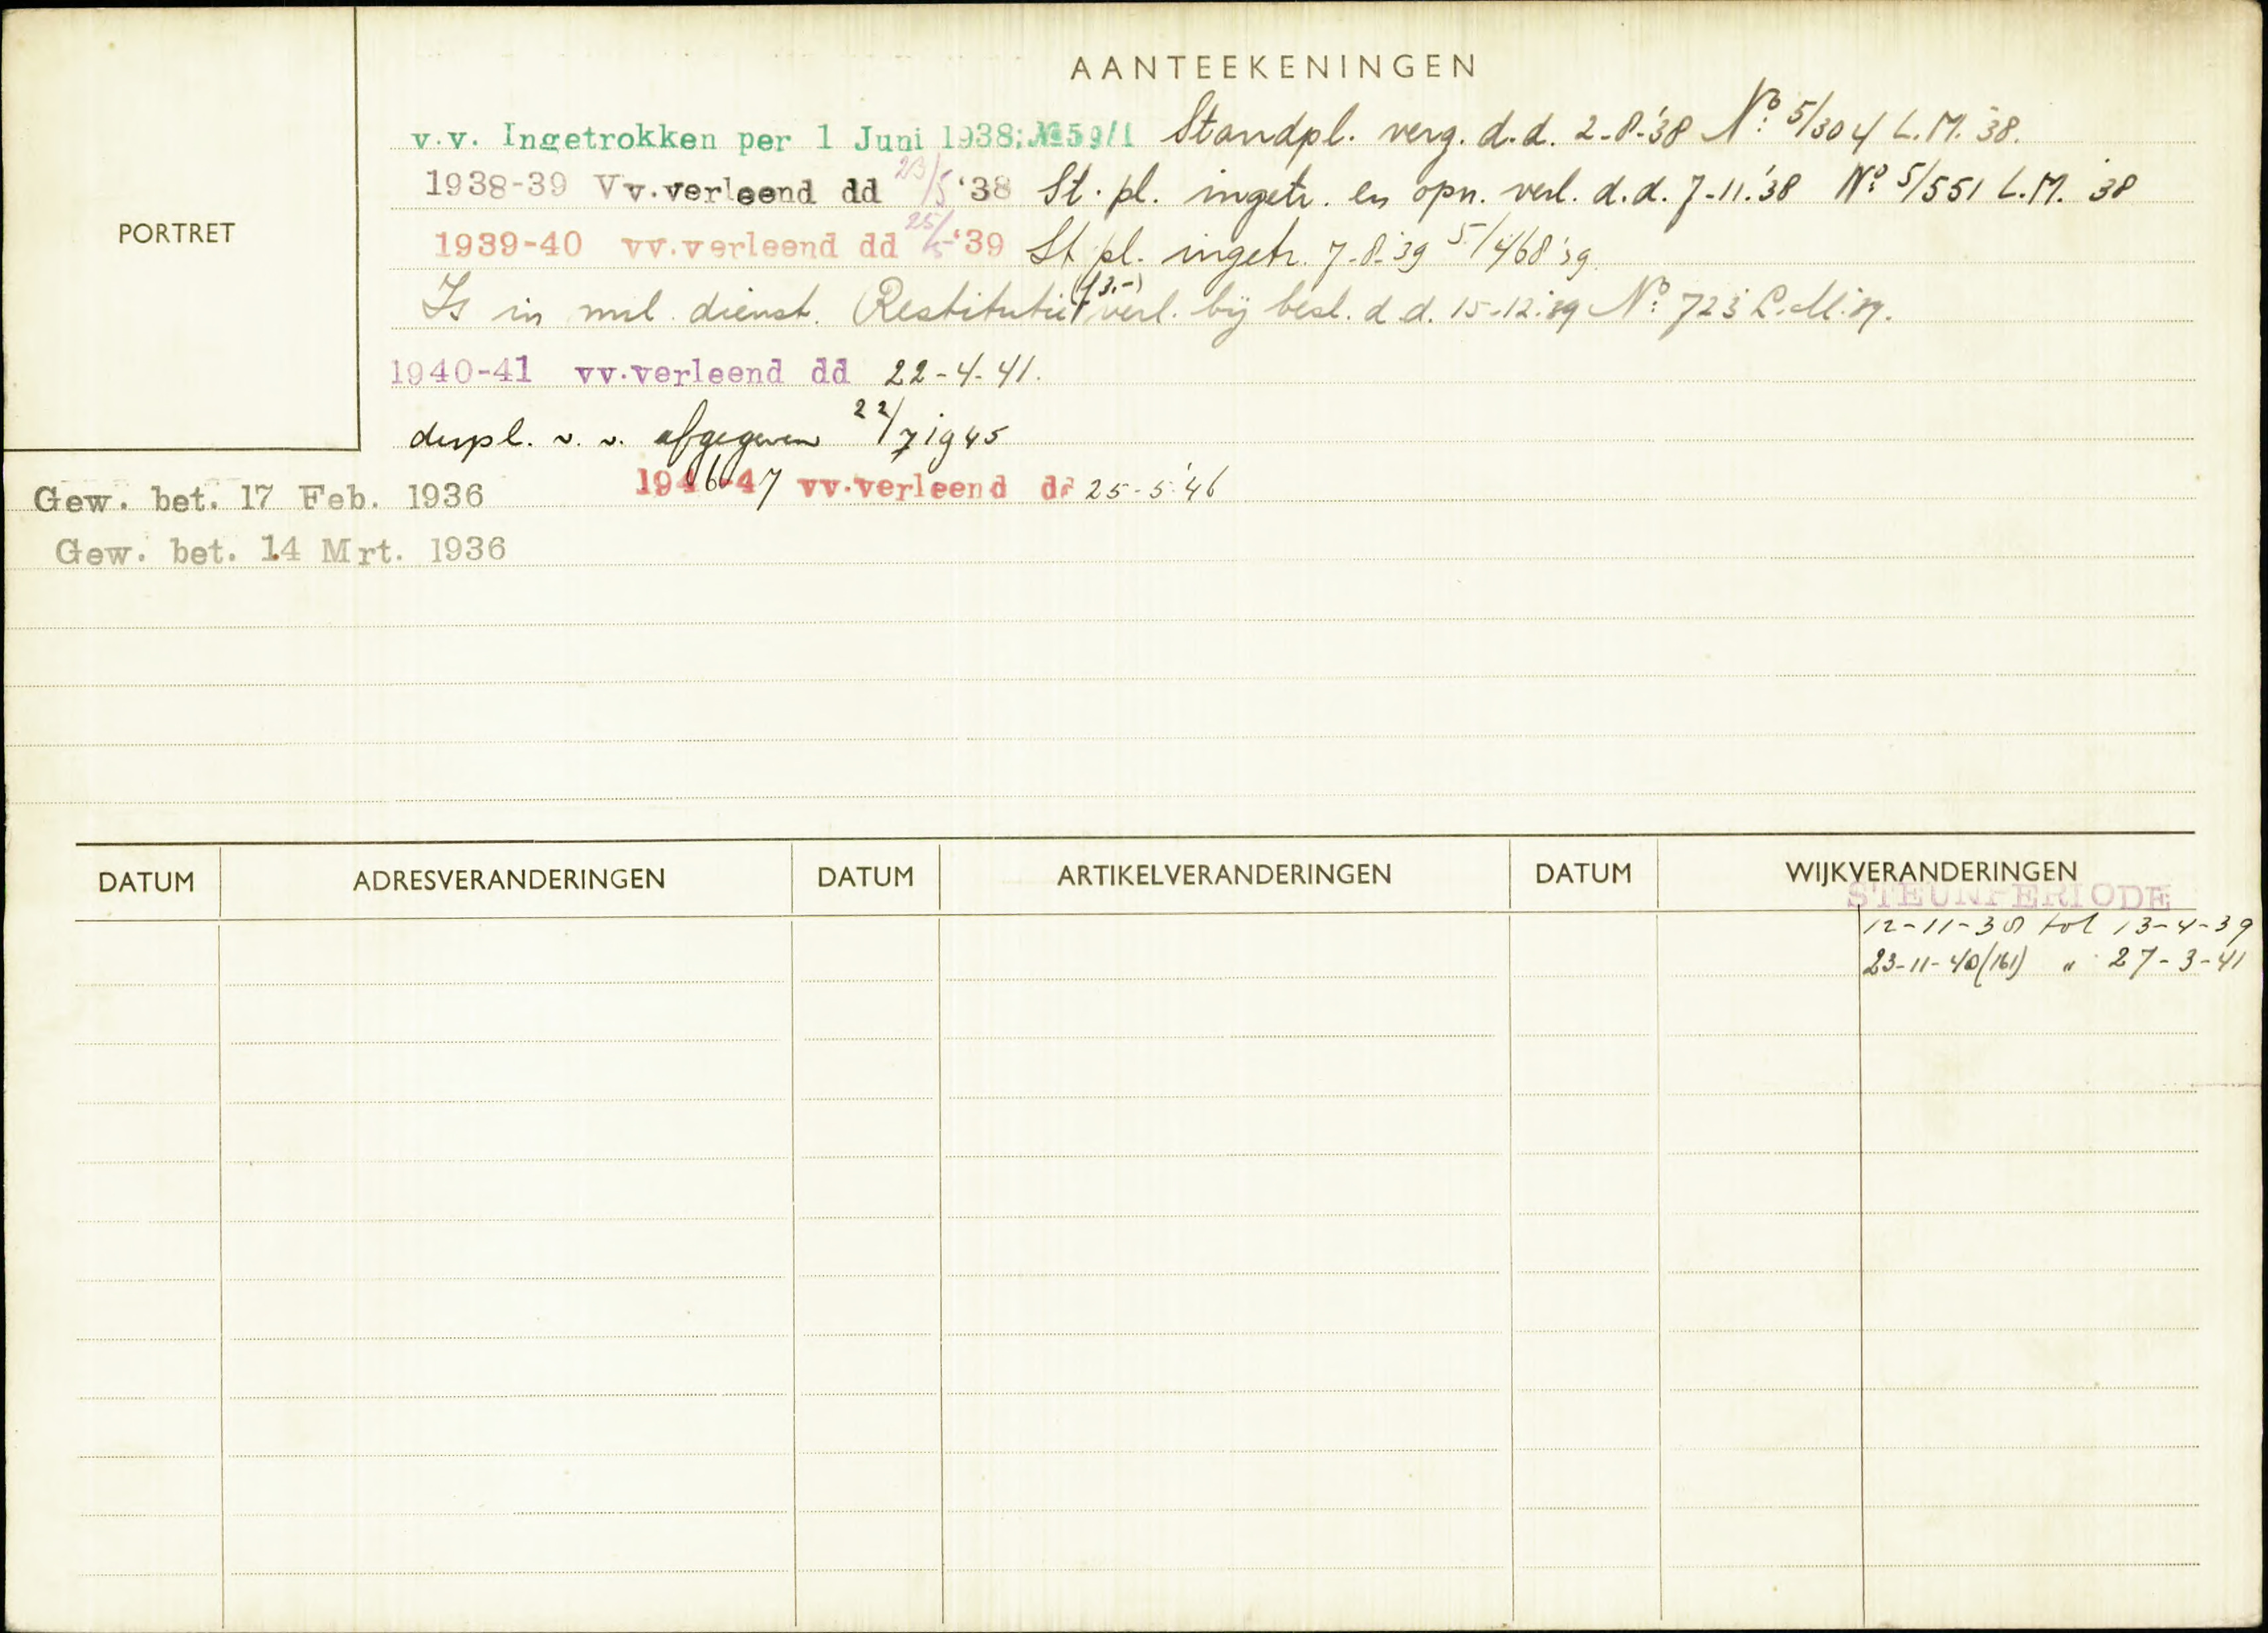 AANTEEKENINGEN
PORTRET
v.v. Ingetrokken per 1 Juni 1938: № 59/1 Standpl. verg. d.d. 2-8-'38 No. 5/304 L.M. '38.
1938-39 Vv.verleend dd 23/5 '38 St. pl. ingetr. en opn. verl. d.d. 7-11-'38 No. 5/551 L.M. '38
1939-40 vv.verleend dd 25/5-'39 St pl. ingetr. 7-8-'39 5/468 '39
Is in mil. dienst. Restitutie (f 3.-) verl. bij besl. d.d. 15-12-'39 No. 723 L.M. '39.
1940-41 vv.verleend dd 22-4-41.
dupl. v.v. afgegeven 22/7 1945
1946-47 vv.verleend dd 25-5-'46
Gew. bet. 17 Feb. 1936
Gew. bet. 14 Mrt. 1936
DATUM ADRESVERANDERINGEN DATUM ARTIKELVERANDERINGEN DATUM WIJKVERANDERINGEN
STEUNPERIODE
12-11-38 tot 13-4-39
23-11-40 (161) " 27-3-41